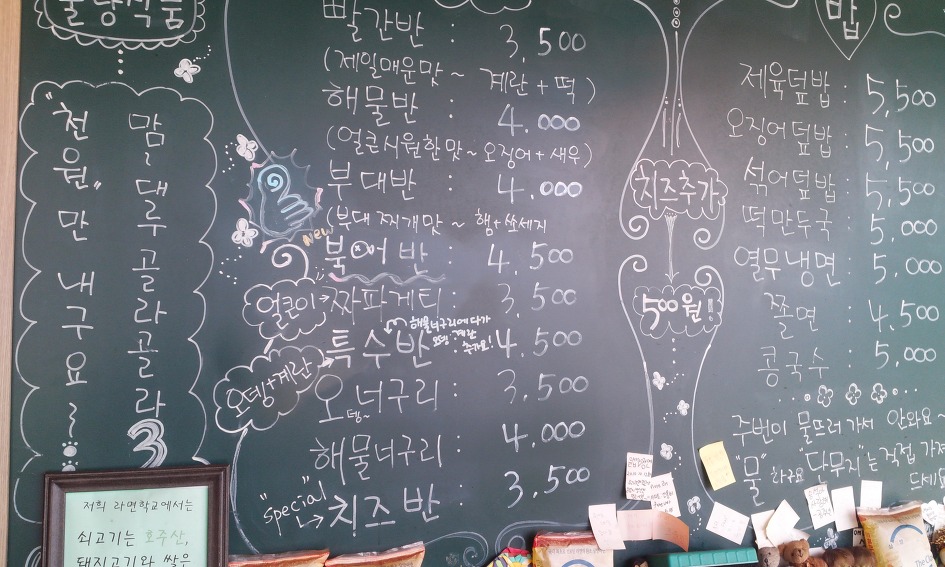 불량식품
"천원"만 내구요~
맘~대루 골라골라 3
빨간반 : 3,500
(제일매운맛~ 계란+떡)
해물반 : 4.000
(얼큰시원한맛~오징어+새우)
부대반 : 4.000
(부대찌개맛~ 햄+쏘세지
new
북어반 : 4,500
얼큰이→짜파게티 : 3,500
특수반 4,500
해물너구리에다가
오뎅 계란
추가요!
오뎅+계란
오뎅~너구리 : 3,500
해물너구리 : 4,000
"special"
치즈반 : 3,500
치즈추가
500원!
밥
제육덮밥 : 5,500
오징어덮밥 : 5,500
섞어덮밥 : 5,500
떡만두국 : 5,000
열무냉면 : 5,000
쫄면 : 4,500
콩국수 : 5,000
주번이 물뜨러가서 안와요
"물"하구요 "단무지"는 직접 가져
드세요
저희 라면학교에서는
쇠고기는 호주산,
돼지고기와 쌀은